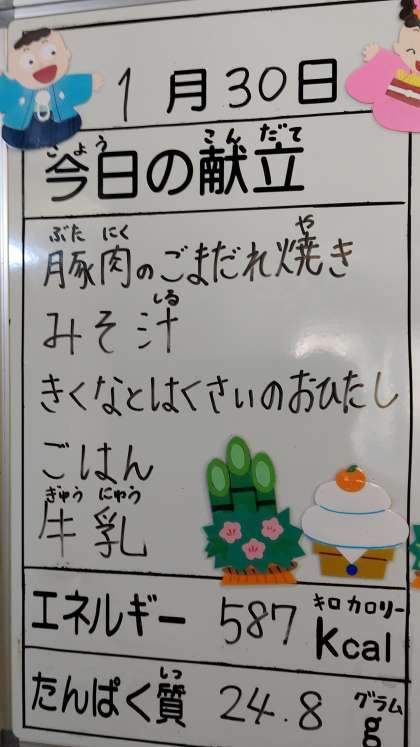 1月30日
こんだて
きょう
今日の献立
ぶた にく や
豚肉のごまだれ焼き
しる
みそ汁
きくなとはくさいのおひたし
ごはん
ぎゅう にゅう
牛乳
キロ カロリー
エネルギー 587 kcal
しつ グラム
たんぱく質 24.8 g